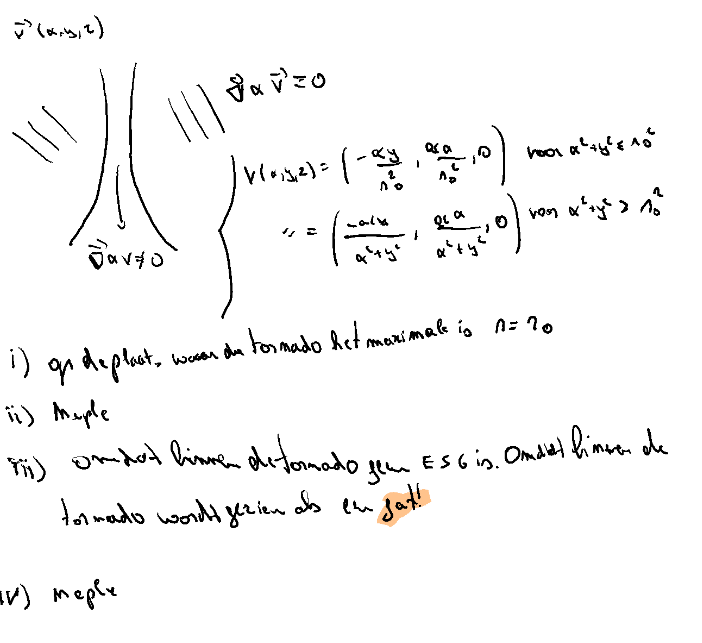 v⃗(x,y,z)
∇⃗ x v⃗ = 0
v(x,y,z) = (-αy/r₀², αx/r₀², 0) voor x²+y² ≤ r₀²
" = (-αy/x²+y², αx/x²+y², 0) voor x²+y² > r₀²
∇⃗ x v ≠ 0
i) op de plaats waar de tornado het maximale is r = r₀
ii) Maple
iii) omdat binnen de tornado geen ESG is. Omdat binnen de
tornado wordt gezien als een gat!
iv) maple